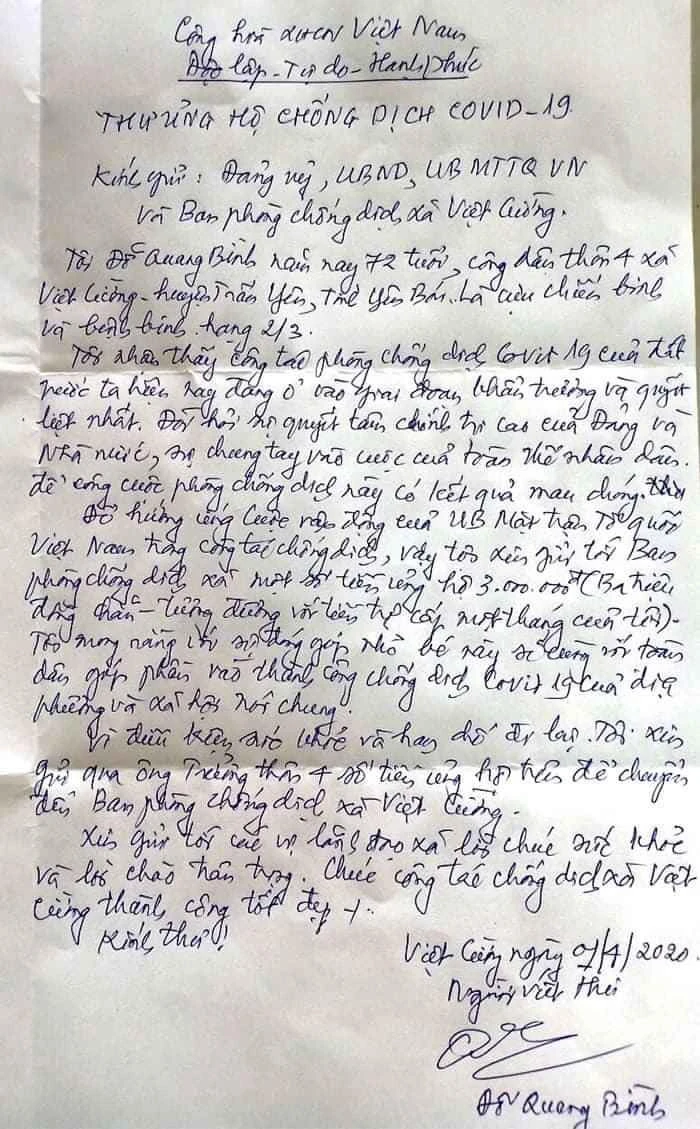 Cộng hoà XHCN Việt Nam
Độc lập - Tự do - Hạnh phúc
THƯ ỦNG HỘ CHỐNG DỊCH COVID-19
Kính gửi: Đảng uỷ, UBND, UB MTTQ VN
và Ban phòng chống dịch xã Việt Cường.
Tôi Đỗ Quang Bình năm nay 72 tuổi, công dân thôn 4 xã
Việt Cường - huyện Trấn Yên, tỉnh Yên Bái. Là cựu chiến binh
và bệnh binh hạng 2/3.
Tôi nhận thấy công tác phòng chống dịch Covit 19 của đất
nước ta hiện nay đang ở vào giai đoạn khẩn trương và quyết
liệt nhất. Đòi hỏi sự quyết tâm chính trị cao của Đảng và
Nhà nước, sự chung tay vào cuộc của toàn thể nhân dân.
để công cuộc phòng chống dịch này có kết quả mau chóng.
Để hưởng ứng cuộc vận động của UB Mặt trận Tổ quốc
Việt Nam trong công tác chống dịch, vậy tôi xin gửi tới Ban
phòng chống dịch xã một số tiền ủng hộ 3.000.000đ (Ba triệu
đồng chẵn - tương đương với tiền trợ cấp một tháng của tôi)-
Tôi mong rằng với sự đóng góp nhỏ bé này sẽ cùng với toàn
dân góp phần vào thành công chống dịch Covit 19 của địa
phương và xã hội nói chung.
Vì điều kiện sức khoẻ và hạn chế đi lại. Tôi xin
gửi qua ông Trưởng thôn 4 số tiền ủng hộ trên để chuyển
đến Ban phòng chống dịch xã Việt Cường.
Xin gửi tới các vị lãnh đạo xã lời chúc sức khoẻ
và lời chào trân trọng. Chúc công tác chống dịch xã Việt
Cường thành công tốt đẹp
Kính thư!
Việt Cường ngày 01/4/2020.
Người viết thư
Đỗ Quang Bình